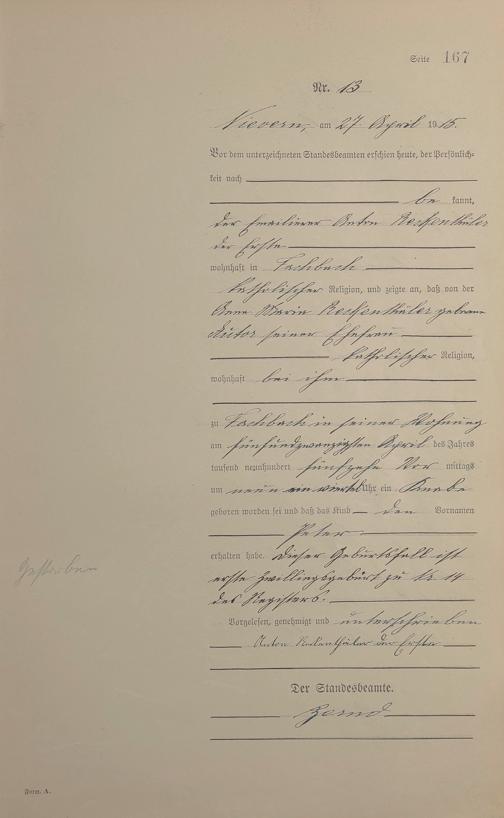 Seite 167
Nr. 13
Nievern, am 27. April 1915.
Vor dem unterzeichneten Standesbeamten erschien heute, der Persönlich-
keit nach
be kannt,
der Emaillierer Anton
der Erste
wohnhaft in Fachbach
katholischer Religion, und zeigte an, daß von der
Anna Maria geborene
seiner Ehefrau
katholischer Religion,
wohnhaft bei ihm
zu Fachbach in seiner Wohnung
am fünfundzwanzigsten April des Jahres
tausend neunhundert fünfzehn Vor mittags
um neun ein viertel Uhr ein Knabe
geboren worden sei und daß das Kind den Vornamen
Peter
erhalten habe. Dieser Geburtsfall ist
erste Zwillingsgeburt zu Nr 14
des Registers.
Vorgelesen, genehmigt und unterschrieben
Anton der Erste
Der Standesbeamte.
Gestorben
Form. A.